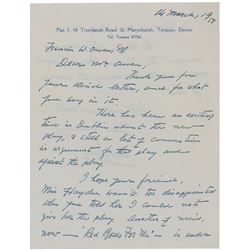 14 March, 1958
Flat 3, 40 Trumlands Road, St. Marychurch, Torquay, Devon.
Tel. Torquay 87766.
Francis W Owen, Esq
Dear Mr Owen,
Thank you for
your kind letter, and for what
you say in it.
There has been an exciting
time in Dublin about the new
play, & still a lot of commotion
in argument for the play and
against the play.
I hope your friend,
Mr. Hayden wasn't too disappointed
when you told him I could not
give her the play. Another of mine,
now — "Red Roses For Me" — is under